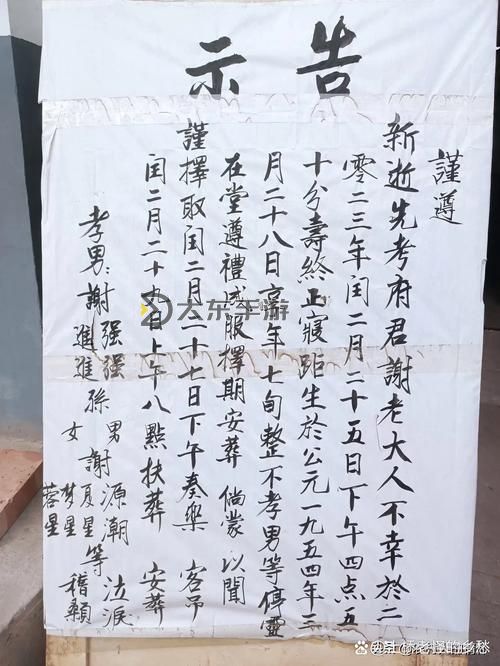 告示
謹遵
新逝先考府君謝老大人不幸於二
零二三年闰二月二十五日下午四点五
十分壽終正寢距生於公元一九五四年三
月二十八日享年七旬整不孝男等停靈
在堂遵禮成服擇期安葬 倘蒙 以聞
謹擇取闰二月二十七日下午奏樂 客吊
闰二月二十九日上午八點扶葬 安葬
孝男:謝强强 進進 孫男女 謝源潮 夏星 梦星 蓉星 等 泣淚 稽顙
大东手游
老怪的乡愁